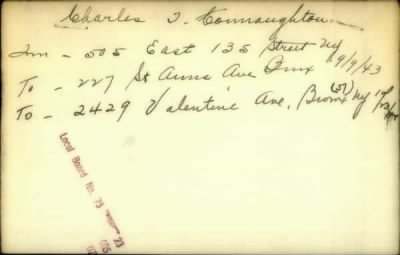 Charles J. Connaughton
Frm - 505 East 135 Street NY
To - 227 St Anns Ave Bnx 9/9/43
To - 2429 Valentine Ave. Bronx (57) NY
Local Board No. 75
23
005